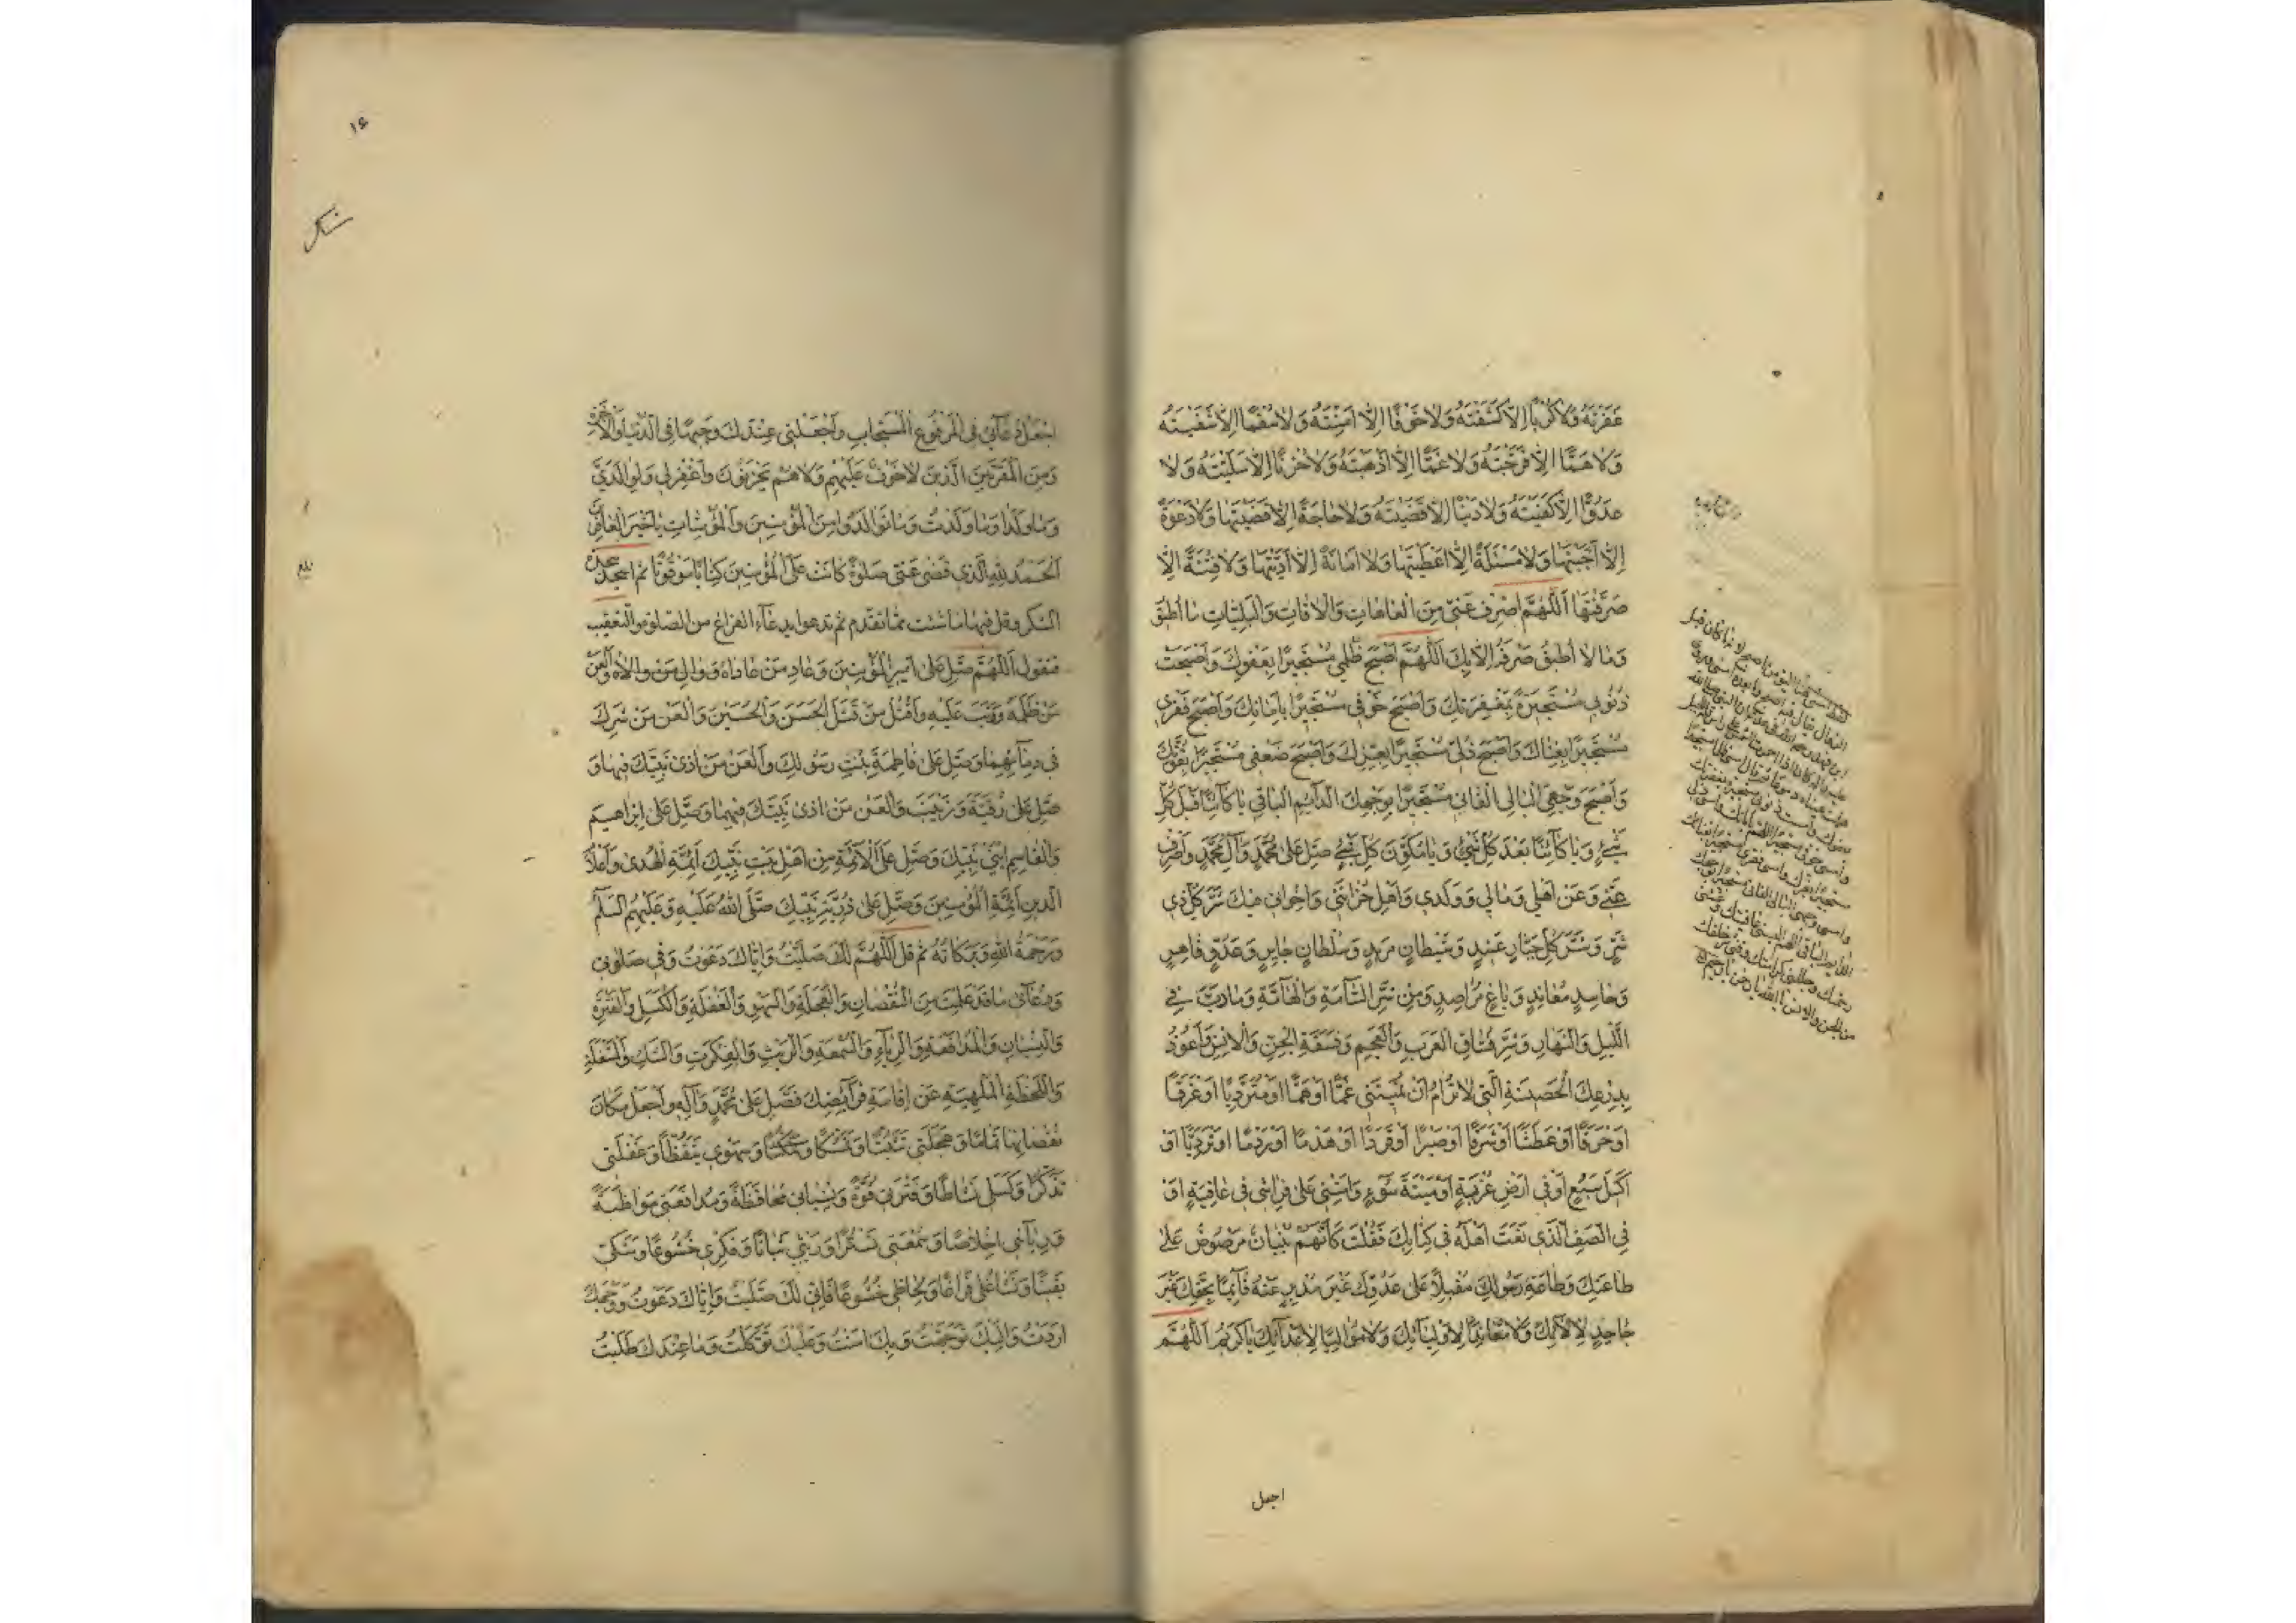 غَفَرْتَهُ وَلَا كَرْبًا إِلَّا كَشَفْتَهُ وَلَا خَوْفًا إِلَّا آمَنْتَهُ وَلَا سُقْمًا إِلَّا شَفَيْتَهُ
وَلَا هَمًّا إِلَّا فَرَّجْتَهُ وَلَا غَمًّا إِلَّا أَذْهَبْتَهُ وَلَا حُزْنًا إِلَّا سَلَّيْتَهُ وَلَا
عَدُوًّا إِلَّا كَفَيْتَهُ وَلَا دَيْنًا إِلَّا قَضَيْتَهُ وَلَا حَاجَةً إِلَّا قَضَيْتَهَا وَلَا دَعْوَةً
إِلَّا أَجَبْتَهَا وَلَا مَسْئَلَةً إِلَّا أَعْطَيْتَهَا وَلَا أَمَانَةً إِلَّا أَدَّيْتَهَا وَلَا فِتْنَةً إِلَّا
صَرَفْتَهَا اَللّٰهُمَّ اصْرِفْ عَنِّي مِنَ الْعَاهَاتِ وَالْآفَاتِ وَالْبَلِيَّاتِ مَا أُطِيقُ
وَمَا لَا أُطِيقُ صَرْفَهُ إِلَّا بِكَ اَللّٰهُمَّ أَصْبَحَ ظُلْمِي مُسْتَجِيرًا بِعَفْوِكَ وَأَصْبَحَتْ
ذُنُوبِي مُسْتَجِيرَةً بِمَغْفِرَتِكَ وَأَصْبَحَ خَوْفِي مُسْتَجِيرًا بِأَمَانِكَ وَأَصْبَحَ فَقْرِي
مُسْتَجِيرًا بِغِنَاكَ وَأَصْبَحَ ذُلِّي مُسْتَجِيرًا بِعِزِّكَ وَأَصْبَحَ ضَعْفِي مُسْتَجِيرًا بِقُوَّتِكَ
وَأَصْبَحَ وَجْهِيَ الْبَالِي الْفَانِي مُسْتَجِيرًا بِوَجْهِكَ الدَّائِمِ الْبَاقِي يَا كَائِنًا قَبْلَ كُلِّ
شَيْءٍ وَيَا كَائِنًا بَعْدَ كُلِّ شَيْءٍ وَيَا مُكَوِّنَ كُلِّ شَيْءٍ صَلِّ عَلَى مُحَمَّدٍ وَآلِ مُحَمَّدٍ وَاصْرِفْ
عَنِّي وَعَنْ أَهْلِي وَمَالِي وَوَلَدِي وَأَهْلِ حُزَانَتِي وَإِخْوَانِي فِيكَ شَرَّ كُلِّ ذِي
شَرٍّ وَشَرَّ كُلِّ جَبَّارٍ عَنِيدٍ وَشَيْطَانٍ مَرِيدٍ وَسُلْطَانٍ جَايِرٍ وَعَدُوٍّ قَاهِرٍ
وَحَاسِدٍ مُعَانِدٍ وَبَاغٍ مُرَاصِدٍ وَمِنْ شَرِّ السَّامَّةِ وَالْهَامَّةِ وَمَا دَبَّ فِي
اللَّيْلِ وَالنَّهَارِ وَشَرِّ فُسَّاقِ الْعَرَبِ وَالْعَجَمِ وَفَسَقَةِ الْجِنِّ وَالْإِنْسِ وَأَعُوذُ
بِدِرْعِكَ الْحَصِينَةِ الَّتِي لَا تُرَامُ أَنْ تُمِيتَنِي غَمًّا أَوْ هَمًّا أَوْ مُتَرَدِّيًا أَوْ غَرَقًا
أَوْ حَرَقًا أَوْ عَطَشًا أَوْ شَرَقًا أَوْ صَبْرًا أَوْ قَوَدًا أَوْ هَدْمًا أَوْ رَدْمًا أَوْ تَرَدِّيًا أَوْ
أَكِيلَ سَبُعٍ أَوْ فِي أَرْضِ غُرْبَةٍ أَوْ مِيتَةَ سُوءٍ وَأَمِتْنِي عَلَى فِرَاشِي فِي عَافِيَةٍ أَوْ
فِي الصَّفِّ الَّذِي نَعَتَّ أَهْلَهُ فِي كِتَابِكَ فَقُلْتَ كَأَنَّهُمْ بُنْيَانٌ مَرْصُوصٌ عَلَى
طَاعَتِكَ وَطَاعَةِ رَسُولِكَ مُقْبِلًا عَلَى عَدُوِّكَ غَيْرَ مُدْبِرٍ عَنْهُ قَائِمًا بِحَقِّكَ غَيْرَ
جَاحِدٍ لِآلَائِكَ وَلَا مُعَانِدًا لِأَوْلِيَائِكَ وَلَا مُوَالِيًا لِأَعْدَائِكَ يَا كَرِيمُ اَللّٰهُمَّ
اجعل
من الجن والانس يا الله يا رحمن يا رحيم
١٦
اجْعَلْ دُعَائِي فِي الْمَرْفُوعِ الْمُسْتَجَابِ وَاجْعَلْنِي عِنْدَكَ وَجِيهًا فِي الدُّنْيَا وَالْآخِرَةِ
وَمِنَ الْمُقَرَّبِينَ الَّذِينَ لَا خَوْفٌ عَلَيْهِمْ وَلَا هُمْ يَحْزَنُونَ وَاغْفِرْ لِي وَلِوَالِدَيَّ
وَمَا وَلَدَا وَمَا وَلَدْتُ وَمَا تَوَالَدُوا مِنَ الْمُؤْمِنِينَ وَالْمُؤْمِنَاتِ يَا خَيْرَ الْغَافِرِينَ
اَلْحَمْدُ لِلّٰهِ الَّذِي قَضَى عَنِّي صَلٰوةً كَانَتْ عَلَى الْمُؤْمِنِينَ كِتَابًا مَوْقُوتًا ثم اسجد سجدتي
الشكر وقل فيهما ما شئت مما تقدم ثم تدعوا بدعاء الفراغ من الصلوة والتعقيب
فتقول اَللّٰهُمَّ صَلِّ عَلَى أَمِيرِ الْمُؤْمِنِينَ وَعَادِ مَنْ عَادَاهُ وَوَالِ مَنْ وَالَاهُ وَالْعَنْ
مَنْ ظَلَمَهُ وَوَثَبَ عَلَيْهِ وَاقْتُلْ مَنْ قَتَلَ الْحَسَنَ وَالْحُسَيْنَ وَالْعَنْ مَنْ شَرِكَ
فِي دِمَائِهِمَا وَصَلِّ عَلَى فَاطِمَةَ بِنْتِ رَسُولِكَ وَالْعَنْ مَنْ آذَى نَبِيَّكَ فِيهَا وَ
صَلِّ عَلَى رُقَيَّةَ وَزَيْنَبَ وَالْعَنْ مَنْ آذَى نَبِيَّكَ فِيهِمَا وَصَلِّ عَلَى إِبْرَاهِيمَ
وَالْقَاسِمِ ابْنَيْ نَبِيِّكَ وَصَلِّ عَلَى الْأَئِمَّةِ مِنْ أَهْلِ بَيْتِ نَبِيِّكَ أَئِمَّةِ الْهُدَى وَأَعْلَامِ
الدِّينِ أَئِمَّةِ الْمُؤْمِنِينَ وَصَلِّ عَلَى ذُرِّيَّةِ نَبِيِّكَ صَلَّى اللّٰهُ عَلَيْهِ وَعَلَيْهِمُ السَّلَامُ
وَرَحْمَةُ اللّٰهِ وَبَرَكَاتُهُ ثم قل اَللّٰهُمَّ لَكَ صَلَّيْتُ وَإِيَّاكَ دَعَوْتُ وَفِي صَلَوٰتِي
وَدُعَائِي مَا قَدْ عَلِمْتَ مِنَ النُّقْصَانِ وَالْعَجَلَةِ وَالسَّهْوِ وَالْغَفْلَةِ وَالْكَسَلِ وَالْفَتْرَةِ
وَالنِّسْيَانِ وَالْمُدَافَعَةِ وَالرِّيَاءِ وَالسُّمْعَةِ وَالرَّيْبِ وَالْفِكْرَةِ وَالشَّكِّ وَالْمَشْغَلَةِ
وَاللَّحْظَةِ الْمُلْهِيَةِ عَنْ إِقَامَةِ فَرَائِضِكَ فَصَلِّ عَلَى مُحَمَّدٍ وَآلِهِ وَاجْعَلْ مَكَانَ
نُقْصَانِهَا تَمَامًا وَعَجَلَتِي تَثَبُّتًا وَتَمَسُّكًا وَسَهْوِي تَيَقُّظًا وَغَفْلَتِي
تَذَكُّرًا وَكَسَلِي نَشَاطًا وَفَتْرَتِي قُوَّةً وَنِسْيَانِي مُحَافَظَةً وَمُدَافَعَتِي مُوَاظَبَةً
وَرِيَائِي إِخْلَاصًا وَسُمْعَتِي تَسَتُّرًا وَرَيْبِي بَيَانًا وَفِكْرِي خُشُوعًا وَشَكِّي
يَقِينًا وَتَشَاغُلِي فَرَاغًا وَلِحَاظِي خُشُوعًا فَإِنِّي لَكَ صَلَّيْتُ وَإِيَّاكَ دَعَوْتُ وَوَجْهَكَ
أَرَدْتُ وَإِلَيْكَ تَوَجَّهْتُ وَبِكَ آمَنْتُ وَعَلَيْكَ تَوَكَّلْتُ وَمَا عِنْدَكَ طَلَبْتُ